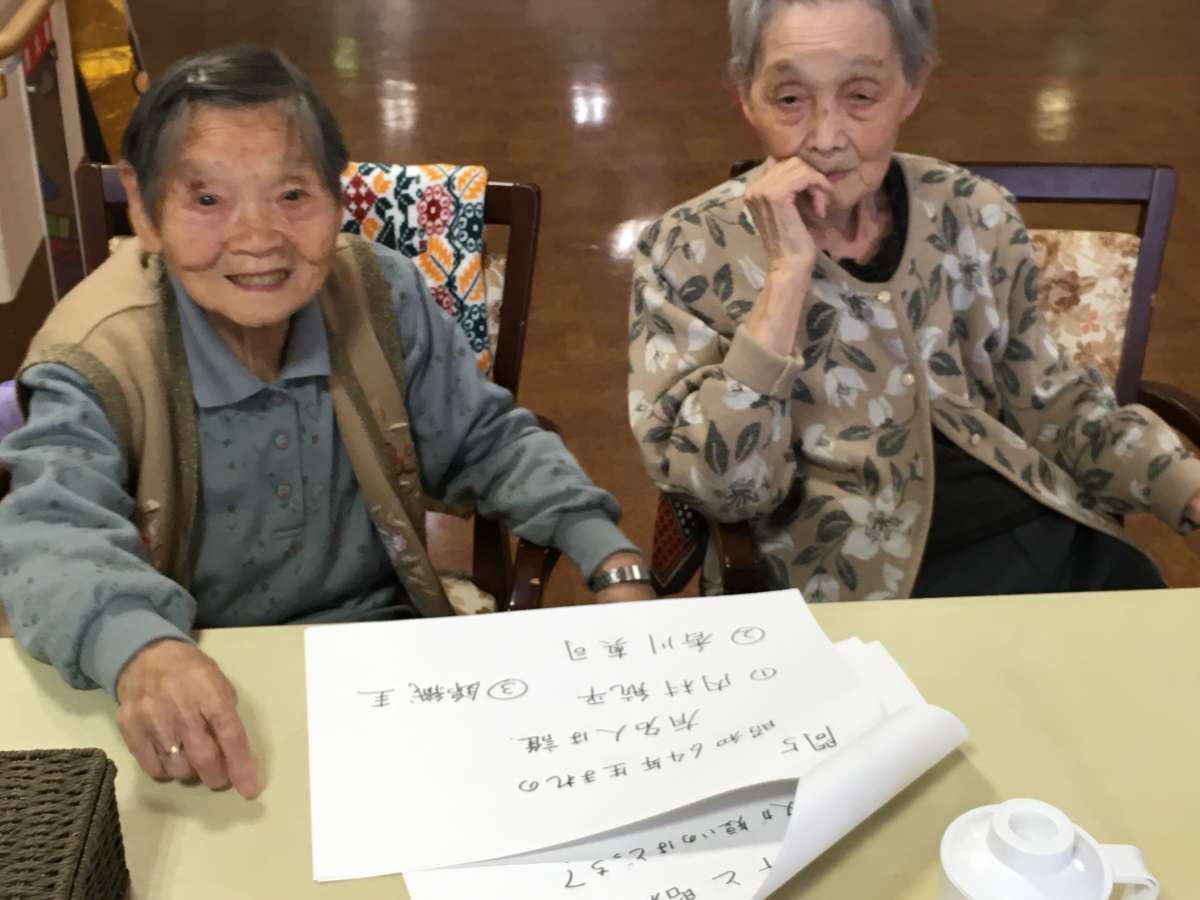 問5 昭和64年生まれの
有名人は誰
① 内村航平 ③ 錦織 圭
② 香川真司
と 昭
が短いのはどっち?